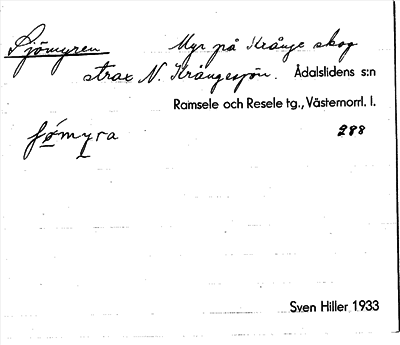 Sjömyren Myr på Krånge skog
strax N. Krångesjön. Ådalslidens s:n
Ramsele och Resele tg., Västernorrl. l.
ʃǿmyra 288
Sven Hiller 1933